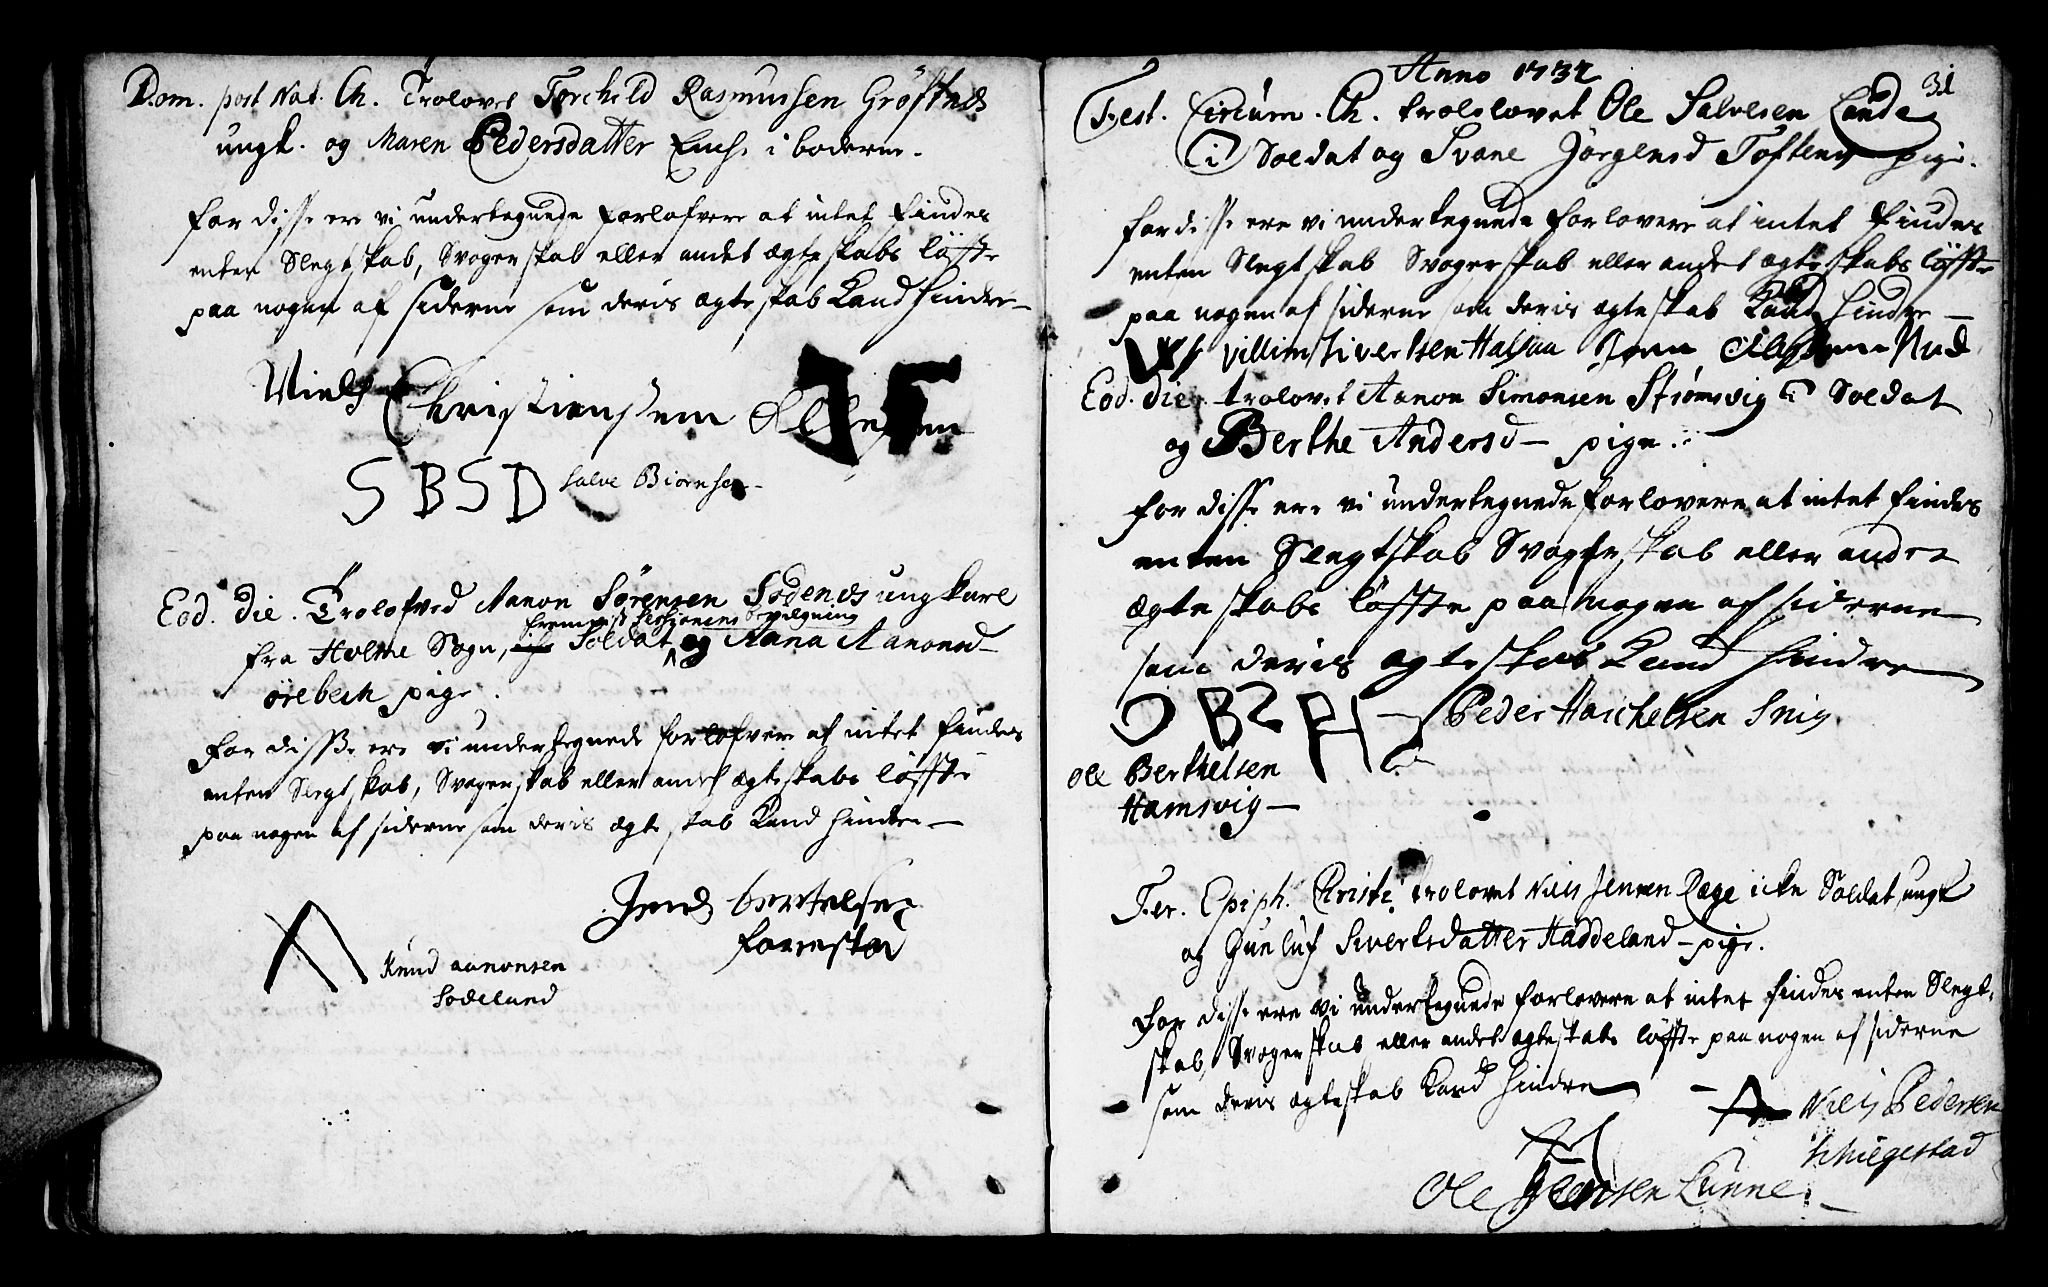 Dom. post Nat. Ch. Trolovet Torchild Rasmussen Grøftnes
ungk. og Maren Pedersdatter Enche i boderne.
for disse ere vi undertegnede forlofvere at intet findes
enten Slegtskab, Svogerskab eller andet ægteskabs løffte
paa nogen af siderne som deris ægteskab kand hindre —
Niels Christiensen Ollesen
SBSD Salve Biørnsen
Eod. Die. Trolofved Aanon Sørensen Sødenes ungkarl
fremvist Sessionens bevilgning
fra Holme Sogn, Soldat og Aana Aanonsd—
örebech pige.
for disse ere vi undertegnede forlofvere at intet findes
enten Slegtskab, Svogerskab eller andet ægteskabs løffte
paa nogen af siderne som deris ægteskab kand hindre —
Jens bertelsen
forrestad
Knud aanonsen
Sodeland
31
Anno 1732
Fest. Circum. Ch. trolovet Ole Salvesen Lande
Soldat og Svane Jørgensd Toftenes pige.
for disse ere vi undertegnede forlovere at intet findes
enten Slegtskab Svogerskab eller andet ægteskabs løffte
paa nogen af siderne som deris ægteskab kand hindre —
Villim Sivertsen Halsaa Jørn
Eod. die. trolovet Aanon Simonsen Strømsvig Soldat
og Berthe Andersd — pige.
for disse ere vi undertegnede forlovere at intet findes
enten Slegtskab Svogerskab eller andet
ægteskabs løffte paa nogen af siderne
som deris ægteskab kand hindre
OBS PH Peder Haschelsen Snig
Ole Berthelsen
Hamsvig —
Fer. Epiph. Christi trolovet Niels Jensen Ræge icke Soldat, ungk
og Gunluf Siwertsdatter Haddeland — pige.
for disse ere vi undertegnede forlovere at intet findes enten Slegt-
skab, Svogerskab eller andet ægteskabs løffte paa nogen af siderne
som deris ægteskab kand hindre
Niels Pedersen
Schiegestad
Ole Jensen Lunne